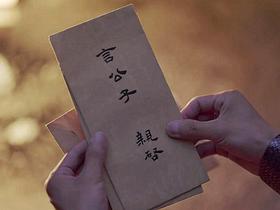 言公子親啓